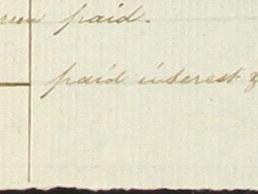 paid.
paid interest